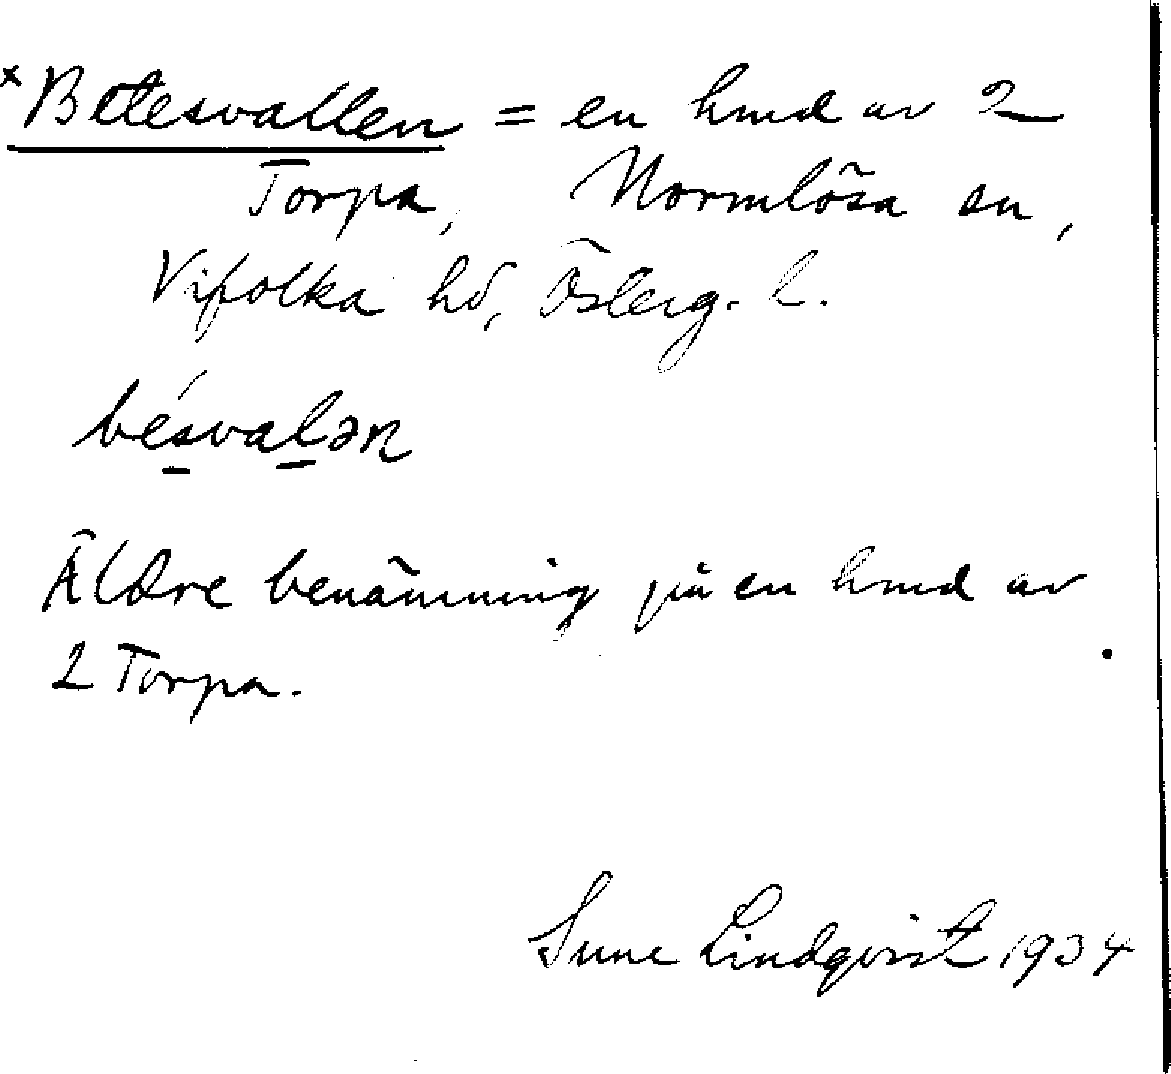 ×Betesvallen = en hmd av 2
Torpa, Normlösa sn,
Vifolka hd, Österg. l.
bésvalən
Äldre benämning på en hmd av
2 Torpa.
Sune Lindqvist 1934